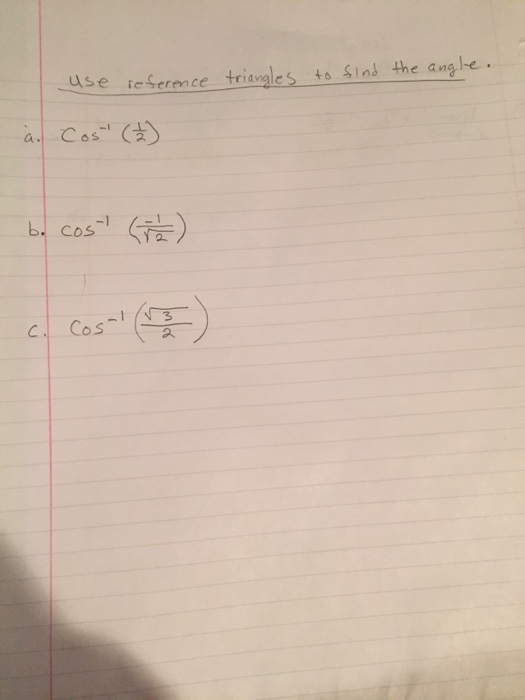 use reference triangles to find the angle.
a. Cos⁻¹ (1/2)
b. cos⁻¹ (-1/√2)
c. Cos⁻¹ (√3/2)